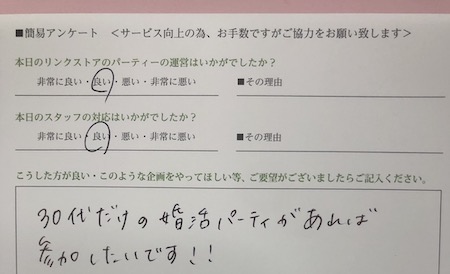 ■簡易アンケート ＜サービス向上の為、お手数ですがご協力をお願い致します＞
本日のリンクストアのパーティーの運営はいかがでしたか？
非常に良い・良い・悪い・非常に悪い ■その理由
本日のスタッフの対応はいかがでしたか？
非常に良い・良い・悪い・非常に悪い ■その理由
こうした方が良い・このような企画をやってほしい等、ご要望がございましたらご記入ください。
30代だけの婚活パーティがあれば
参加したいです！！